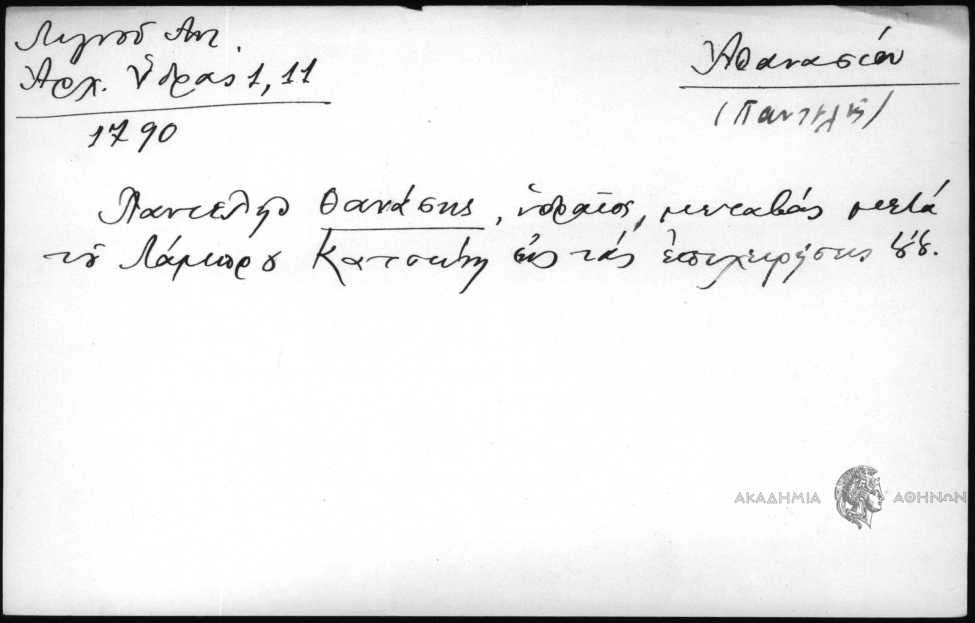 Λιγνοῦ Ἀντ.
Ἀρχ. Ὕδρας 1, 11
1790
Ἀθανασίου
(Παντελῆ)
Παντελῆς Θανάσης, ὑδραῖος, μεταβάς μετά
τοῦ Λάμπρου Κατσώνη εἰς τάς ἐπιχειρήσεις
ΑΚΑΔΗΜΙΑ ΑΘΗΝΩΝ